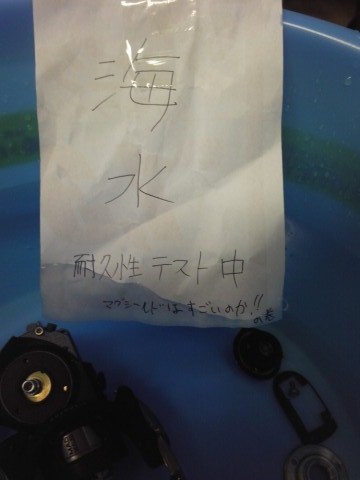 海
水
耐久性テスト中
マグシールドーはすごいのか!!
の巻